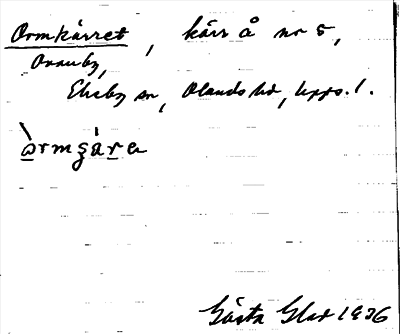 Ormkärret, kärr å nr 5,
Ovanby,
Ekeby sn, Olands hd, Upps. l.
òrmgára
Gösta Glad 1936